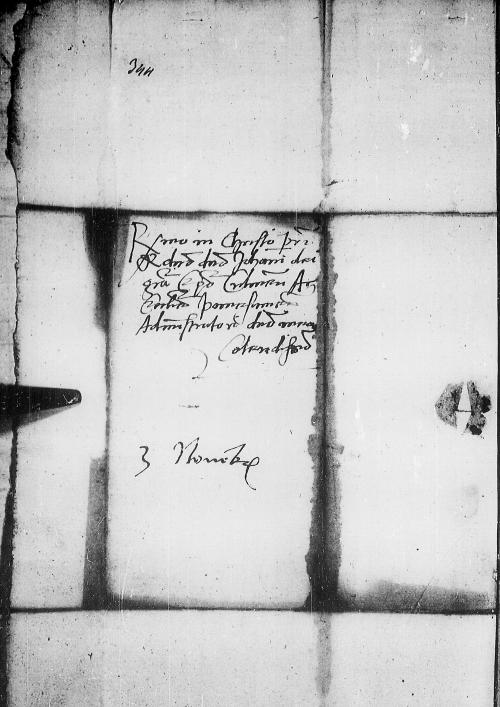 344
Rmo in Christo pri
et dno dno Johani dei
gra Epo Culmen Ac
Ecclie pomesanien
Administratori dno meo
Colendissio
3 Novebr